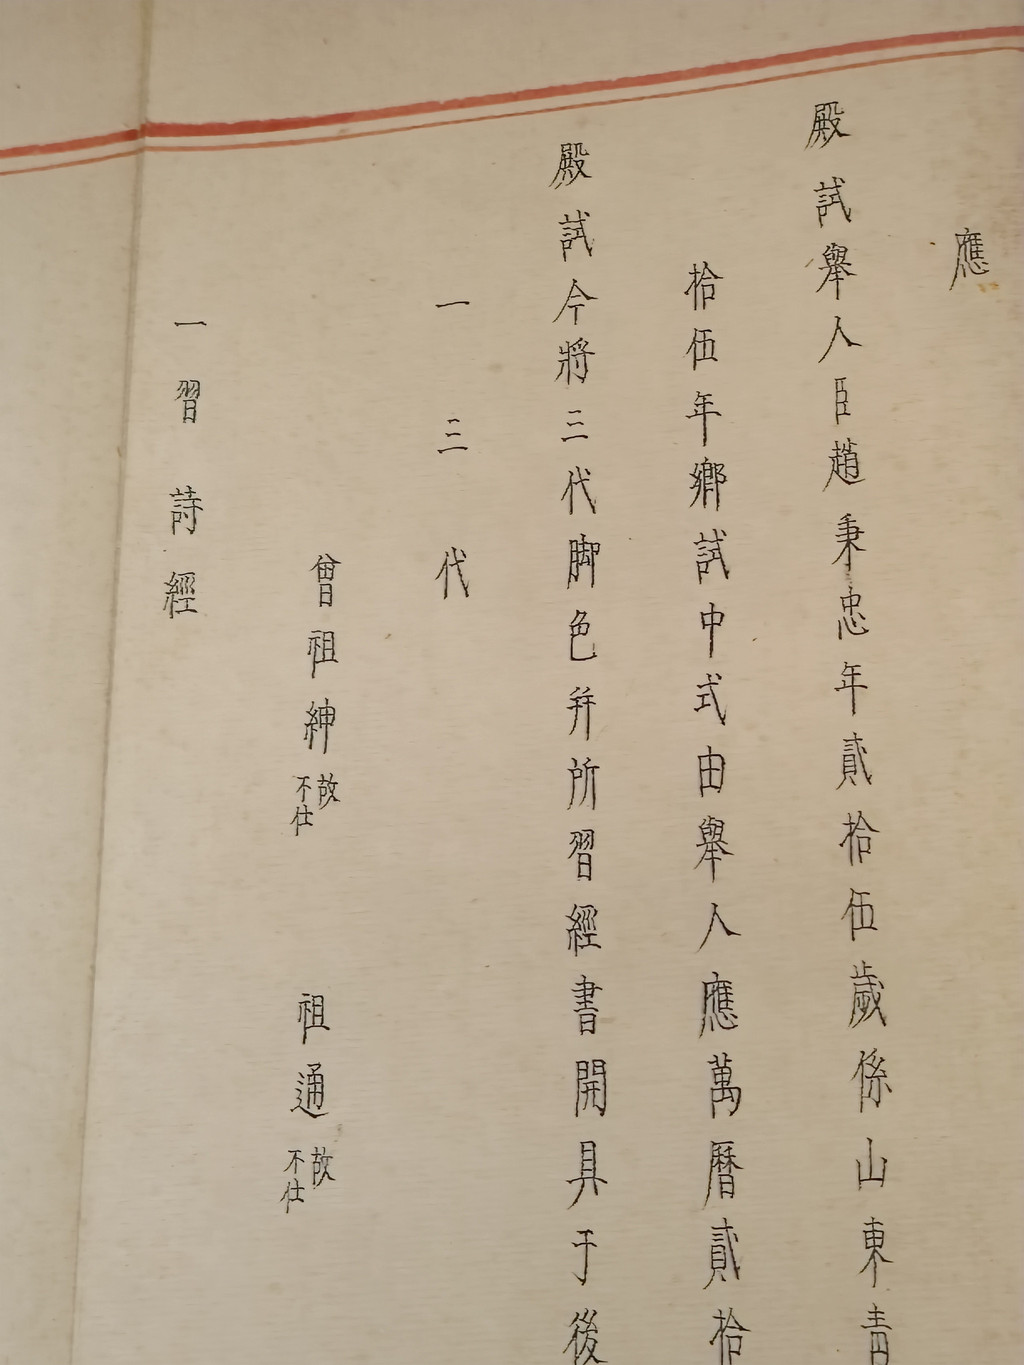 應
殿試舉人臣趙秉忠年貳拾伍歲係山東青
拾伍年鄉試中式由舉人應萬曆貳拾
殿試今將三代脚色并所習經書開具于後
一三代
曾祖紳故不仕
祖通故不仕
一習詩經